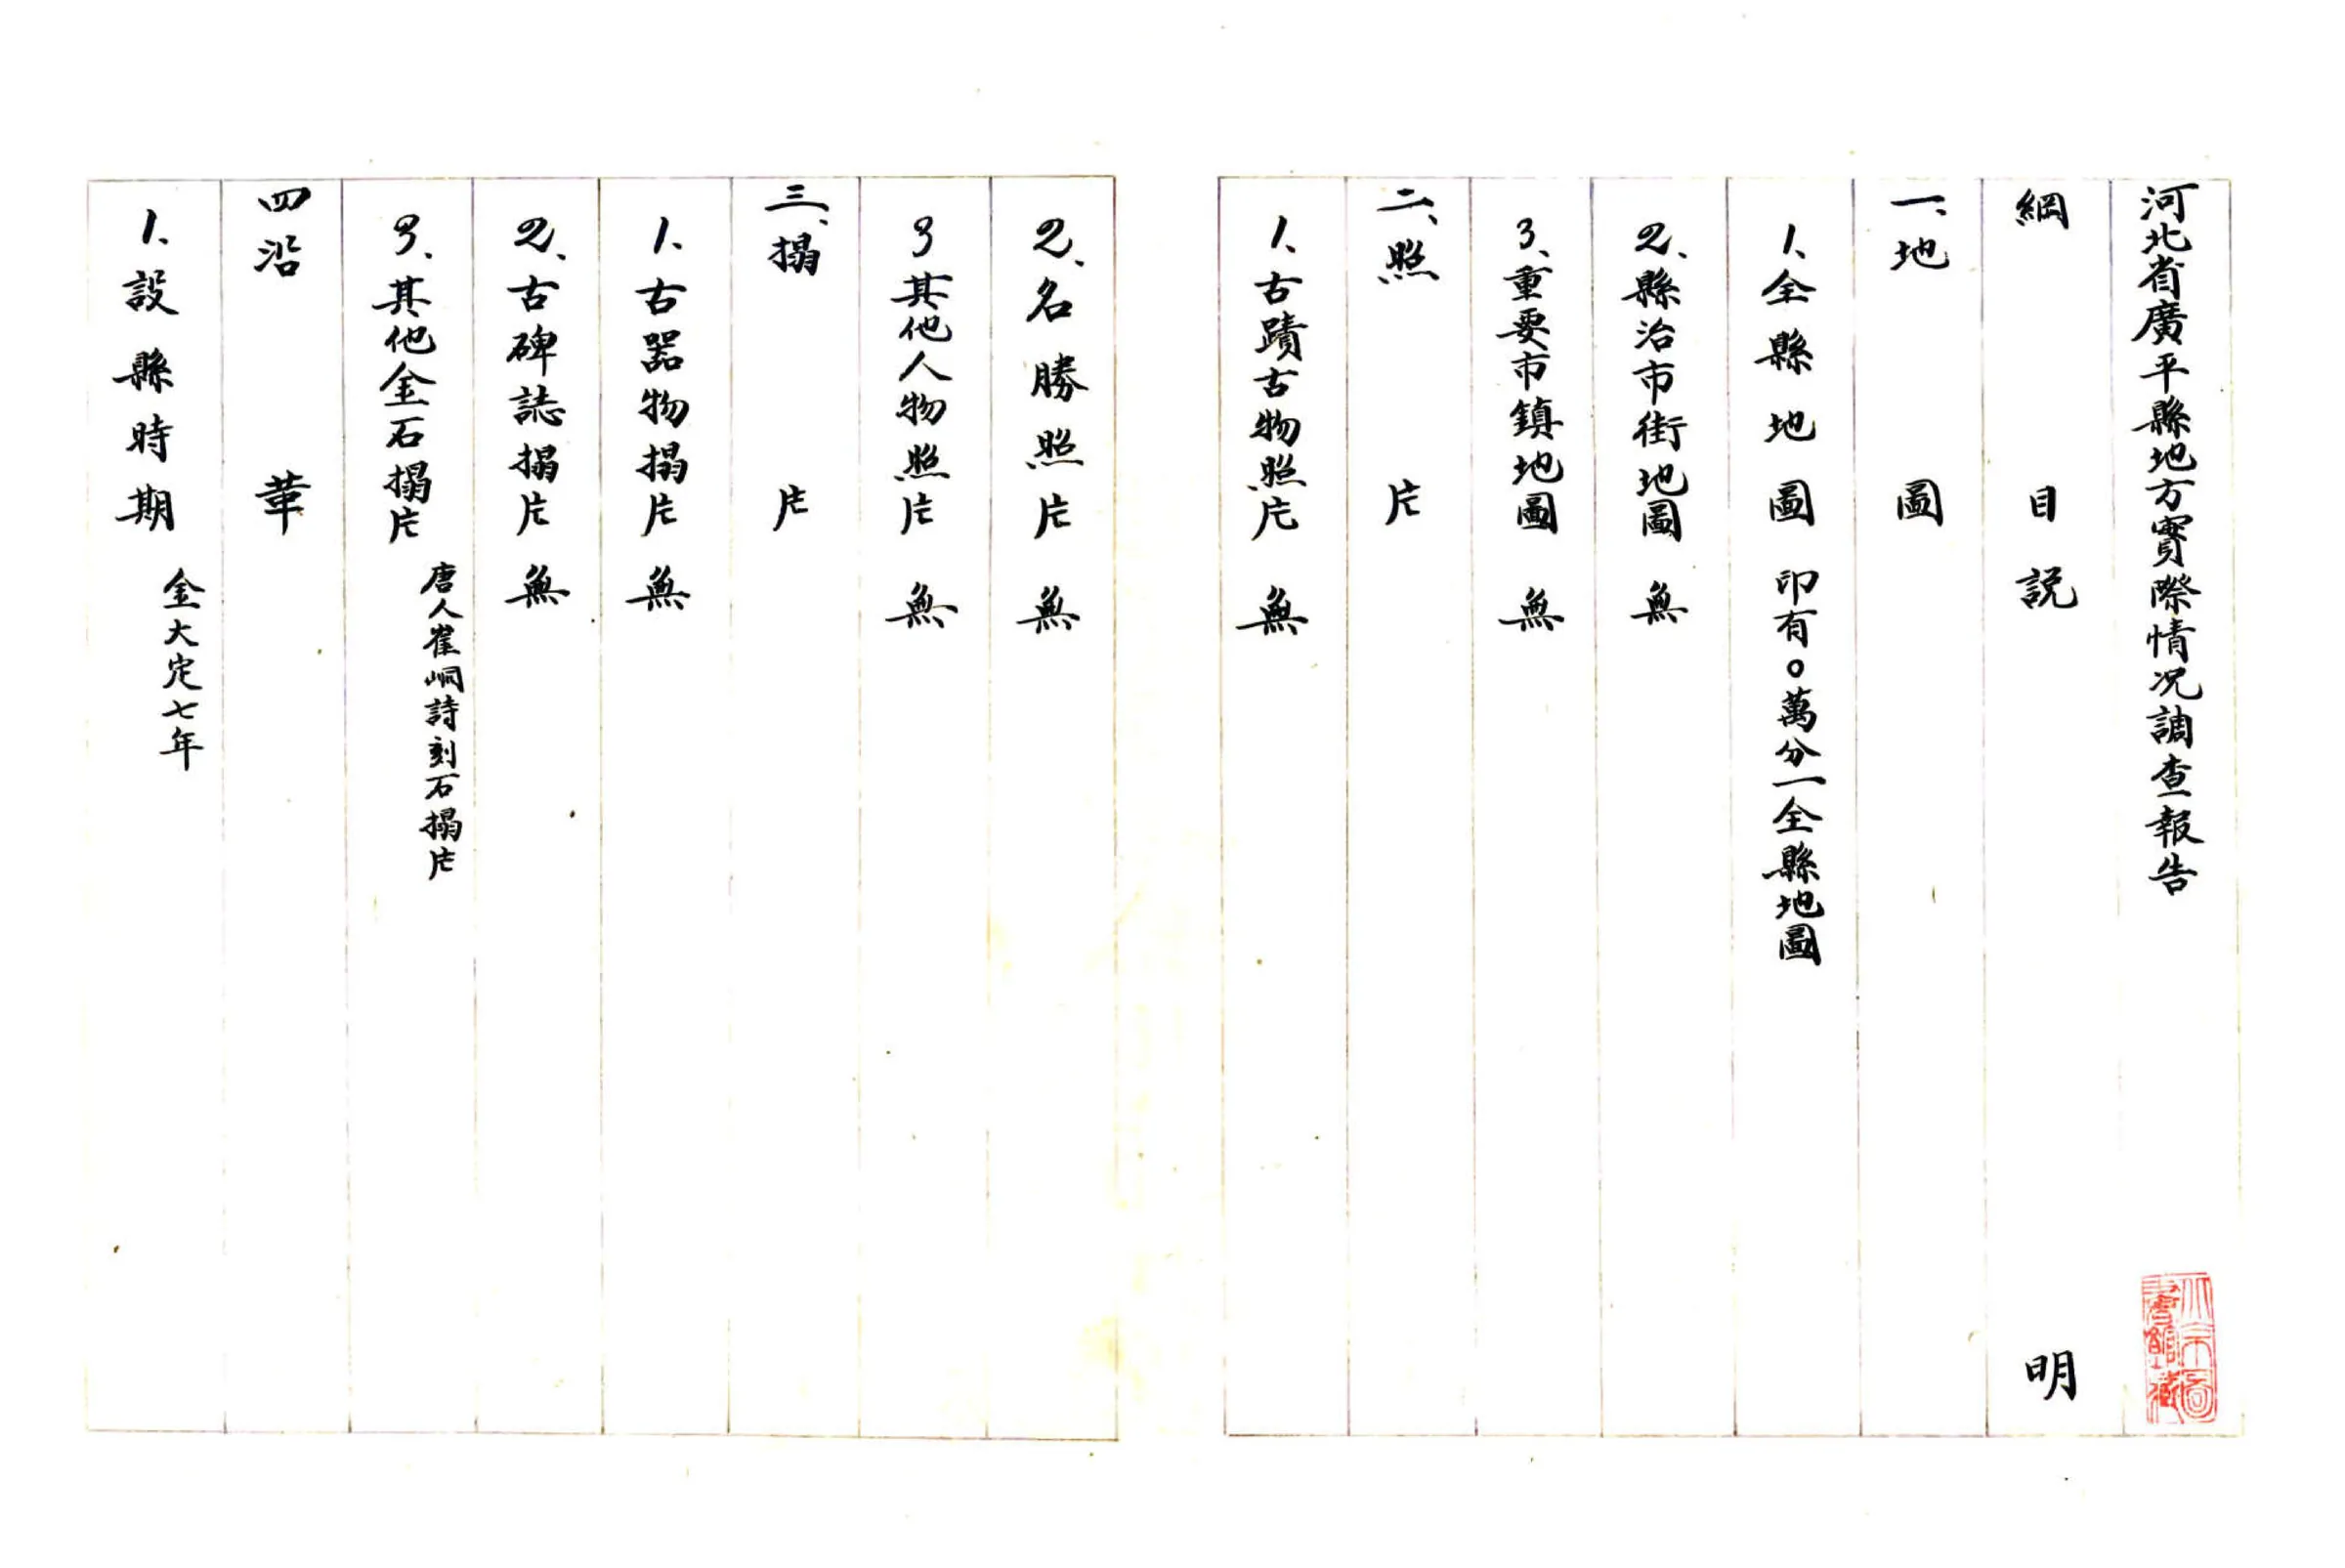 河北省廣平縣地方實際情况調查報告
綱目說明
一、地圖
1、全縣地圖 印有〇萬分一全縣地圖
2、縣治市街地圖 無
3、重要市鎮地圖 無
二、照片
1、古蹟古物照片 無
2、名勝照片 無
3 其他人物照片 無
三、搨片
1、古器物搨片 無
2、古碑誌搨片 無
3、其他金石搨片 唐人崔峒詩刻石搨片
四沿革
1、設縣時期 金大定七年
北京圖書館藏